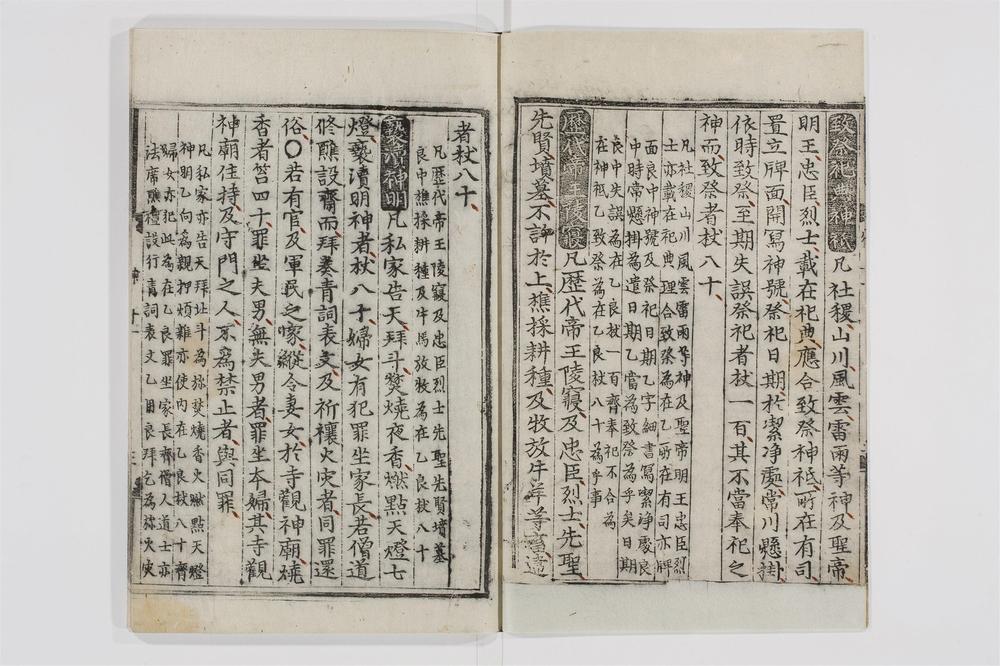 致祭祀典神祇凡社稷山川風雲雷雨等神及聖帝
明王忠臣烈士載在祀典應合致祭神祇所在有司
置立牌面開寫神號祭祀日期於潔淨處常川懸掛
依時致祭至期失誤祭祀者杖一百其不當奉祀之
神而致祭者杖八十
凡社稷山川風雲雷雨等神及聖帝明王忠臣烈
士亦載在祀典理合致祭為在乙所在有司亦牌
面良中神號及祭祀日期乙字細書寫潔淨處良
中時常懸掛為遣日期乙當為致祭為乎矣日期
良中失誤為在乙良杖一百齊奉祀不合為
在神祇乙致祭為在乙良杖八十為乎事
歷代帝王陵寢凡歷代帝王陵寢及忠臣烈士先聖
先賢墳墓不許於上樵採耕種及牧放牛羊等畜違
者杖八十
凡歷代帝王陵寢及忠臣烈士先聖先賢墳墓
良中樵採耕種及牛馬放牧為在乙良杖八十
褻瀆神明凡私家告天拜斗焚燒夜香燃點天燈七
燈褻瀆明神者杖八十婦女有犯罪坐家長若僧道
修醮設齋而拜奏青詞表文及祈禳火灾者同罪還
俗○若有官及軍民之家縱令妻女於寺觀神廟燒
香者笞四十罪坐夫男無夫男者罪坐本婦其寺觀
神廟住持及守門之人不為禁止者與同罪
凡私家亦告天拜北斗為弥焚燒香火燃點天燈
神明乙向為親押煩雜亦使內在乙良杖八十齊
婦女亦犯此為在乙良罪坐家長齊僧人道士亦
法席醮禮設行青詞表文乙用良拜乞為弥火灾